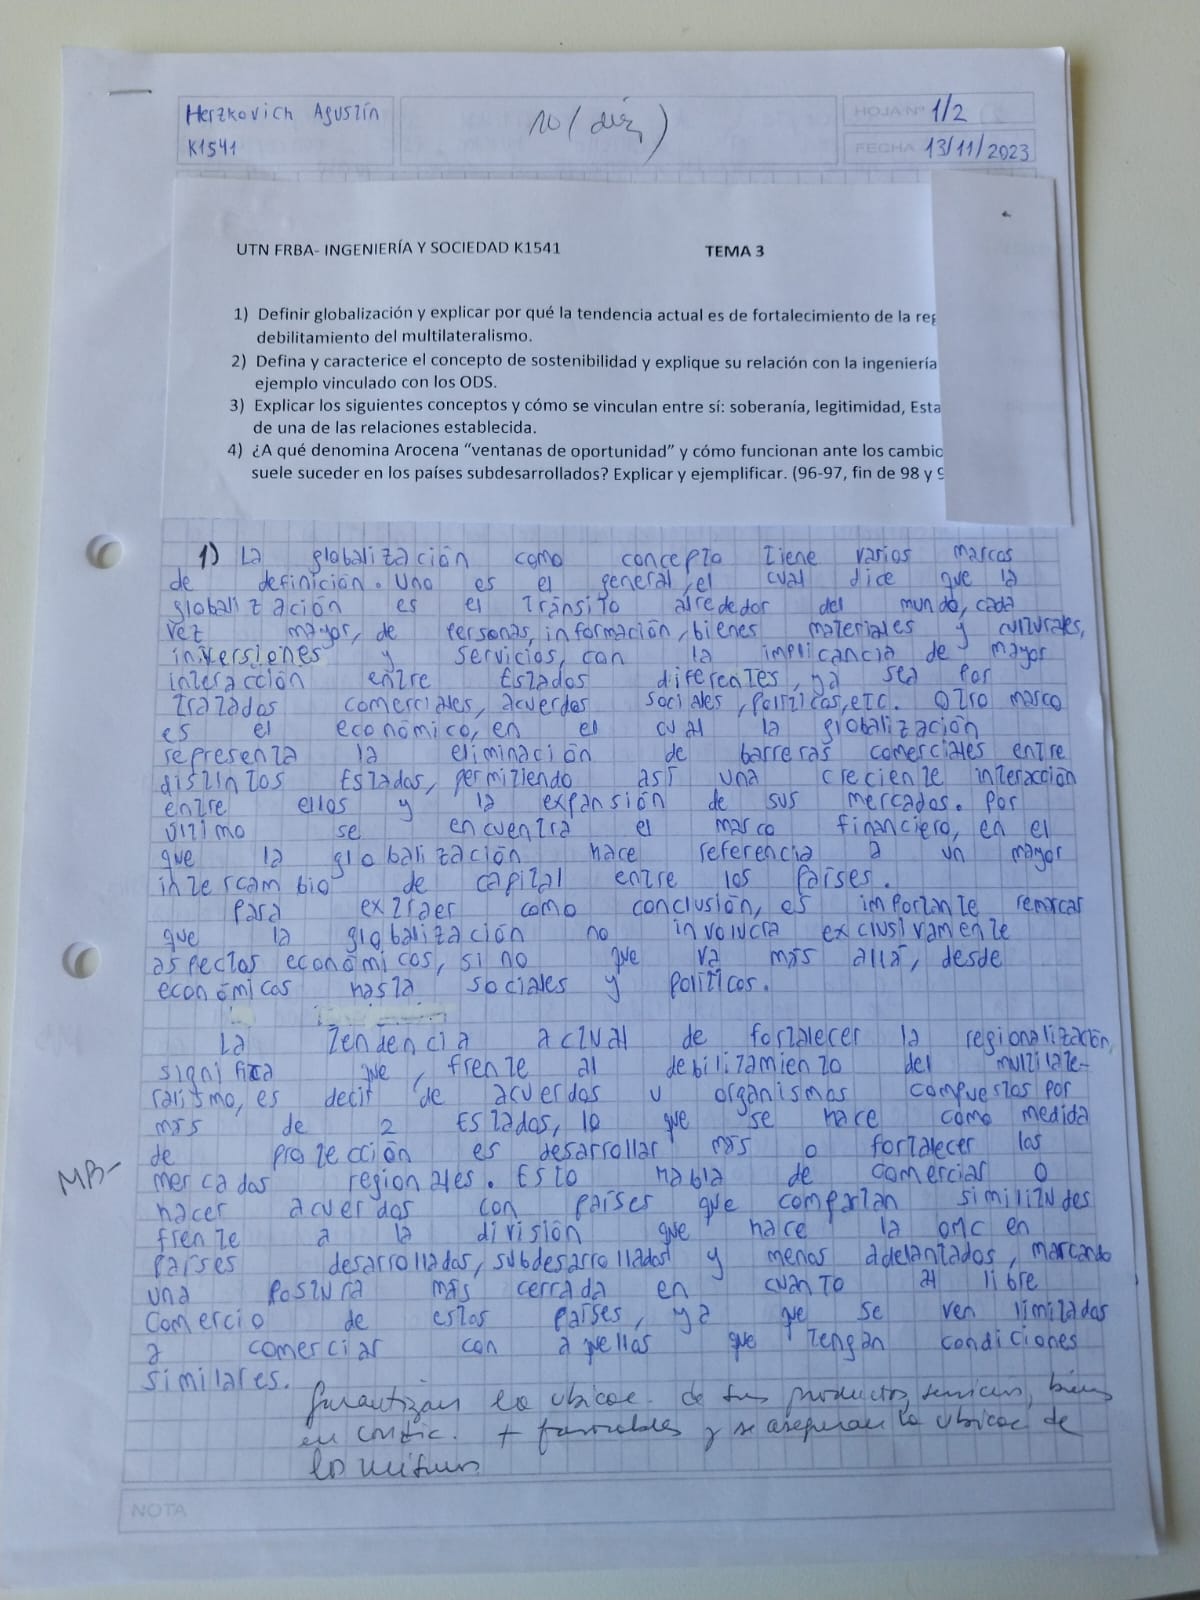 Herzkovich Agustín
K1541
10 (diez)
HOJA Nº 1/2
FECHA 13/11/2023
UTN FRBA- INGENIERÍA Y SOCIEDAD K1541 TEMA 3
1) Definir globalización y explicar por qué la tendencia actual es de fortalecimiento de la reg
debilitamiento del multilateralismo.
2) Defina y caracterice el concepto de sostenibilidad y explique su relación con la ingeniería
ejemplo vinculado con los ODS.
3) Explicar los siguientes conceptos y cómo se vinculan entre sí: soberanía, legitimidad, Esta
de una de las relaciones establecida.
4) ¿A qué denomina Arocena “ventanas de oportunidad” y cómo funcionan ante los cambio
suele suceder en los países subdesarrollados? Explicar y ejemplificar. (96-97, fin de 98 y 9
1) La globalización como concepto tiene varios marcos
de definición. Uno es el general, el cual dice que la
globalización es el tránsito alrededor del mundo, cada
vez mayor, de personas, información, bienes materiales y culturales,
inversiones y servicios, con la implicancia de mayor
interacción entre Estados diferentes, ya sea por
tratados comerciales, acuerdos sociales, políticos, etc. Otro marco
es el económico, en el cual la globalización
representa la eliminación de barreras comerciales entre
distintos Estados, permitiendo así una creciente interacción
entre ellos y la expansión de sus mercados. Por
último se encuentra el marco financiero, en el
que la globalización hace referencia a un mayor
intercambio de capital entre los países.
Para extraer como conclusión, es importante remarcar
que la globalización no involucra exclusivamente
aspectos económicos, si no que va más allá, desde
económicos hasta sociales y políticos.
La tendencia actual de fortalecer la regionalización,
significa que, frente al debilitamiento del multilate-
ralismo, es decir de acuerdos u organismos compuestos por
más de 2 Estados, lo que se hace como medida
de protección es desarrollar más o fortalecer los
mercados regionales. Esto habla de comerciar o
MB-
hacer acuerdos con países que compartan similitudes
frente a la división que hace la OMC en
países desarrollados, subdesarrollados y menos adelantados, marcando
una postura más cerrada en cuanto al libre
comercio de estos países, ya que se ven limitados
a comerciar con aquellos que tengan condiciones
similares.
Garantizan la ubicac. de sus productos, servicios, bienes
en condic. + favorables y se aseguran la ubicac de
los mismos
NOTA